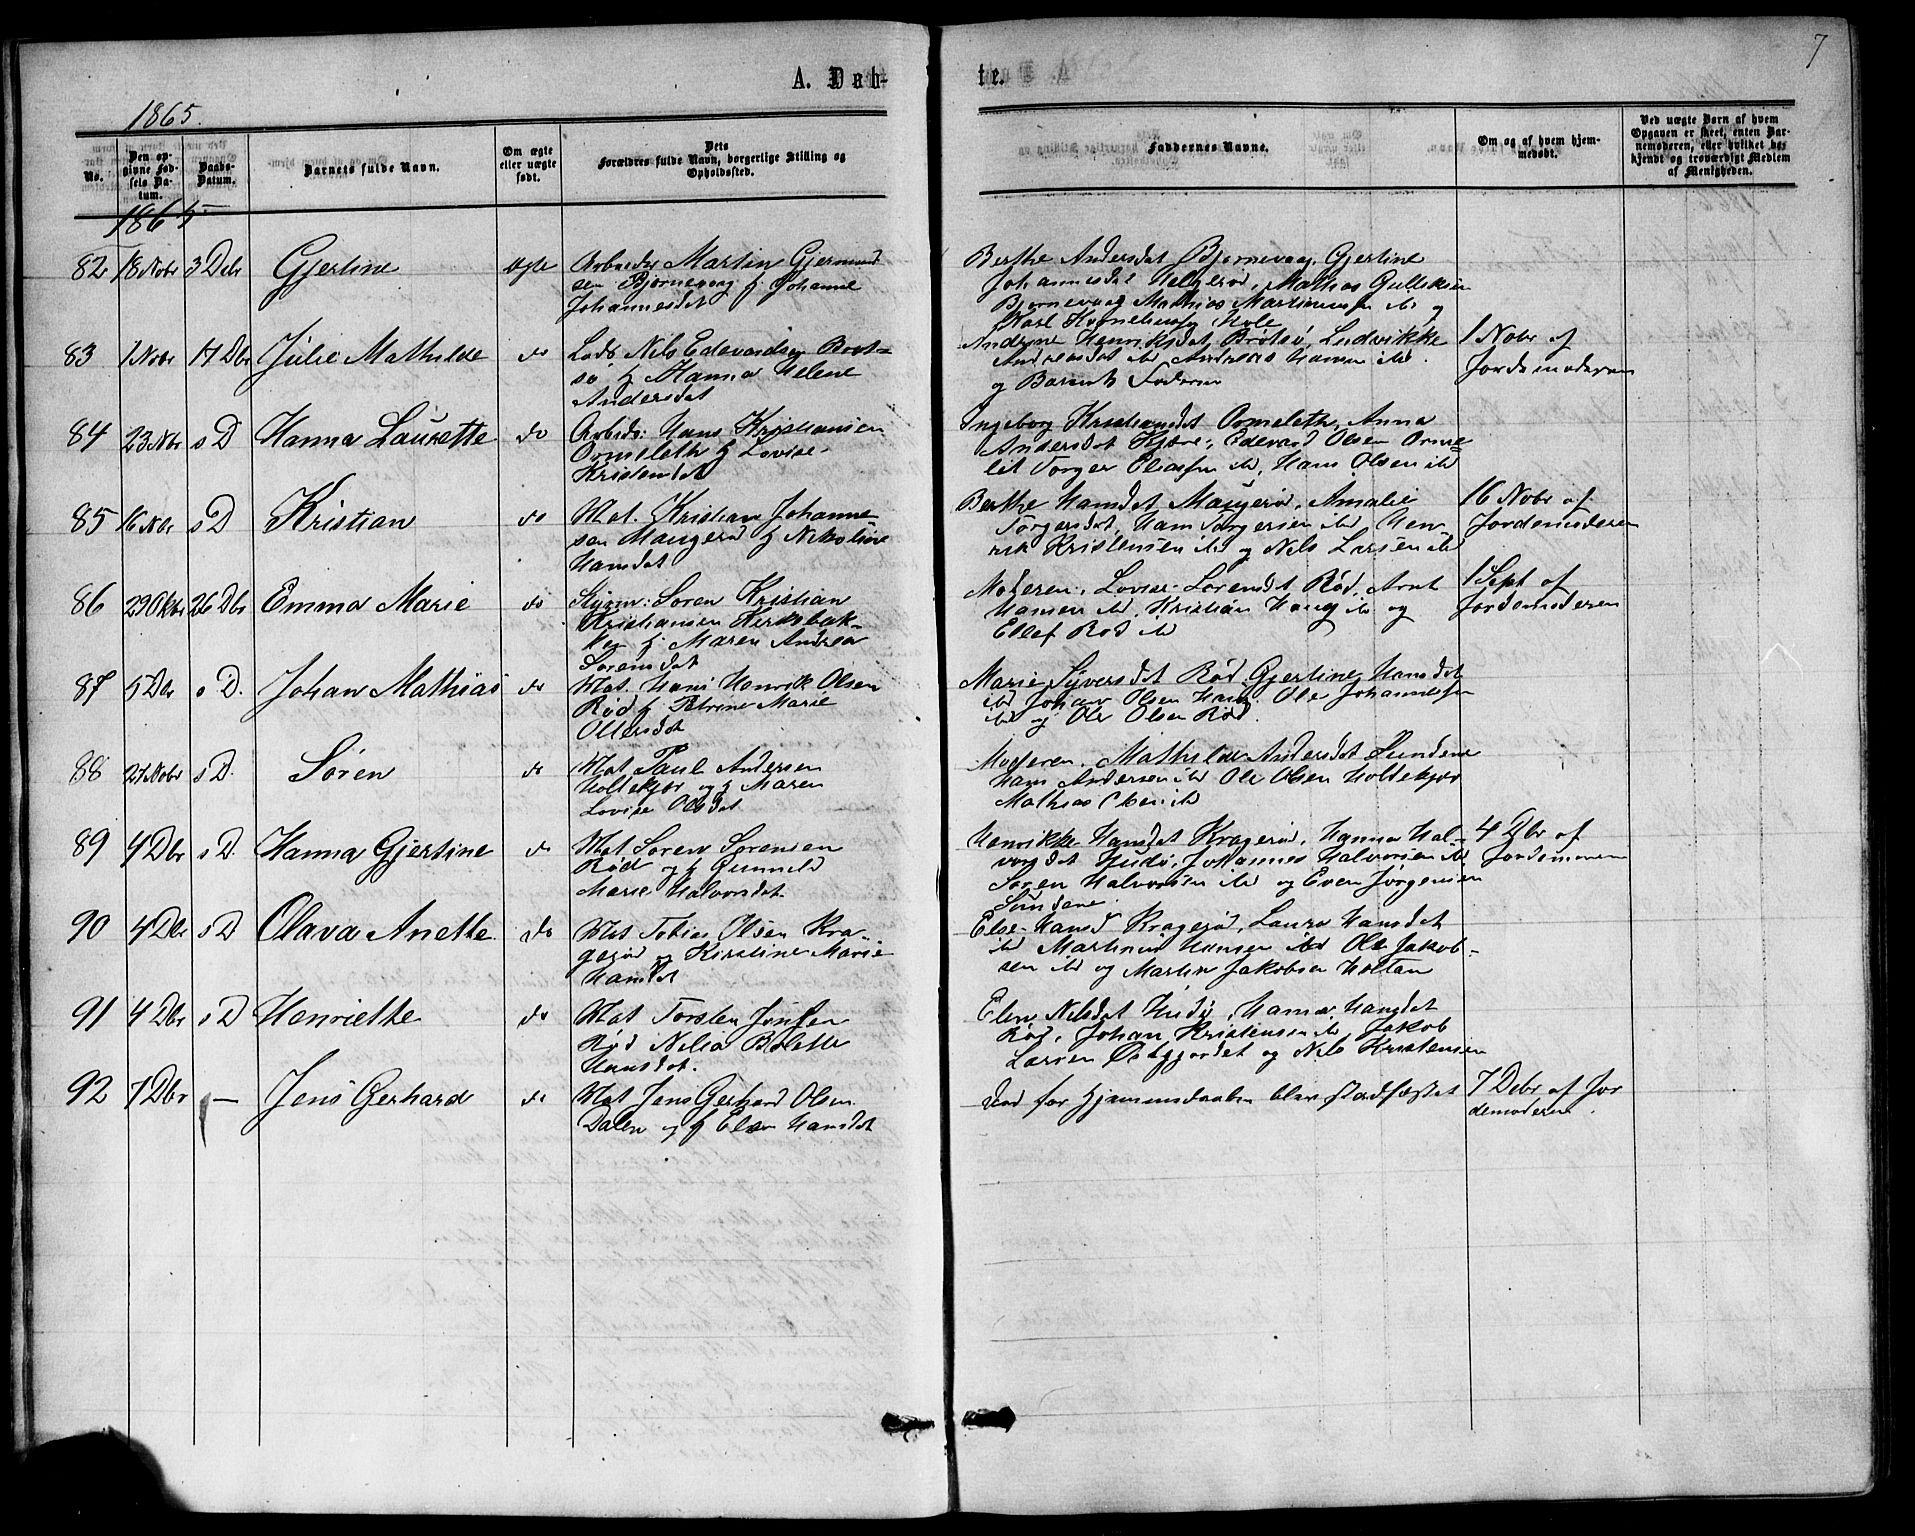 7
A. Døb-
te.
1865.
No.
Den op-
givne Fød-
sels Da-
tum.
Daabs-
Datum.
Barnets fulde Navn.
Om ægte
eller uægte
født.
Dets
Forældres fulde Navn, borgerlige Stilling og
Opholdssted.
Faddernes Navne.
Om og af hvem hjem-
medøbt.
Ved uægte Børn af hvem
Opgaven er skeet, enten Bar-
nemoderen, eller hvilket be-
kjendt og troværdigt Medlem
af Menigheden.
1865
82 18 Nobr 3 Debr Gjertine ægte
Arbeider Martin Gjermund
sen Bjørnevaag h Johanne
Johannesdat
Berthe Andersdat Bjørnevaag, Gjertine
Johannesdat Helgerød, Mathias Gulliksen
Bjørnevaag Mathias Martinusen ib og
Karl Kornelius Hvle
83 1 Nobr 17 Dbr Julie Mathilde do
Lods Nils Edevardsen Brøt-
sø h Hanna Helene
Andersdat
Andrine Henriksdat Brøtsø, Ludvikke
Andreasdat ib Andreas Hansen ibd.
og Barnets Faderen
1 Nobr af
Jordemoderen
84 23 Nbr s D Hanna Laurette do
Arbeds: Hans Kristiansen
Ormeleth h Lovise
Kristensdat
Ingeborg Kristiansdat Ormeleth, Anna
Andersdat Kjære, Edevard Olsen Orme=
let Torger Eliassen ibd, Hans Olsen ibd
85 16 Nobr s D Kristian do
Mat. Kristian Johanne
sen Maugerød h Nikoline
Hansdat
Berthe Hansdat Maugerød, Amalie
Torgersdat, Hans Torgersen ibd, Hen
rik Kristensen ib og Nils Larsen ibd
16 Nobr af
Jordemoderen
86 29 Oktbr 26 Dbr Emma Marie do
Styrm: Søren Kristian
Kristiansen Kirkebak-
ken h Maren Andrea
Sørensdat
Moderen, Lovise Lorensdt Rød, Arnt
Hansen ibd, Kristian Haug ib og
Ellef Rød ib
1 Sept af
Jordemoderen
87 5 Dbr s D. Johan Mathias do
Mat. Hans Henrik Olsen
Rød h Petrine Marie
Ollersdat
Marie Syversdt Rød Gjertine Hansdat
ib Johan Olsen Haug. Ole Johannesen
ib og Ole Olsen Rød.
88 27 Nobr s D. Søren do
Mat Paul Andersen
Holtekjær og h Maren
Lovise Olsdat
Moderen, Mathilde Andersdat Sundene
Hans Andersen ib Ole Olsen Holtekjær
Mathias Olsen ib
89 4 Dbr s D. Hanna Gjertine do
Mat Søren Sørensen
Rød og h Gunnild
Marie Halvorsdat
Henrikke Hansdat Kragerød, Hanna Hal-
vorsdat Hudø, Johannes Halvorsen ibd
Søren Halvorsen ib og Even Jørgensen
Sundene
4 Dbr af
Jordemoren
90 4 Dbr s D Olava Anette do
Mat Tobias Olsen Kra
gerød og Kirstine Marie
Hansdat
Else Hansd Kragerød, Laura Hansdat
ib Martinus Hansen ibd Ole Jakob-
sen ib og Martin Jakobsen Holtan
91 4 Dbr s D Henriette do
Mat Torsten Jensen
Rød Nilia Bolette
Hansdat.
Elen Nilsdat Hudø, Hanna Hansdat
Rød, Johan Kristensen ib, Jakob
Larsen Østgjordet og Nils Kristensen
92 7 Dbr — Jens Gerhard do
Mat Jens Gerhard Olsen
Dalen og h Elen Hansdat
Død før Hjemmedaaben blev stadfæstet
7 Debr af Jor
demoderen.